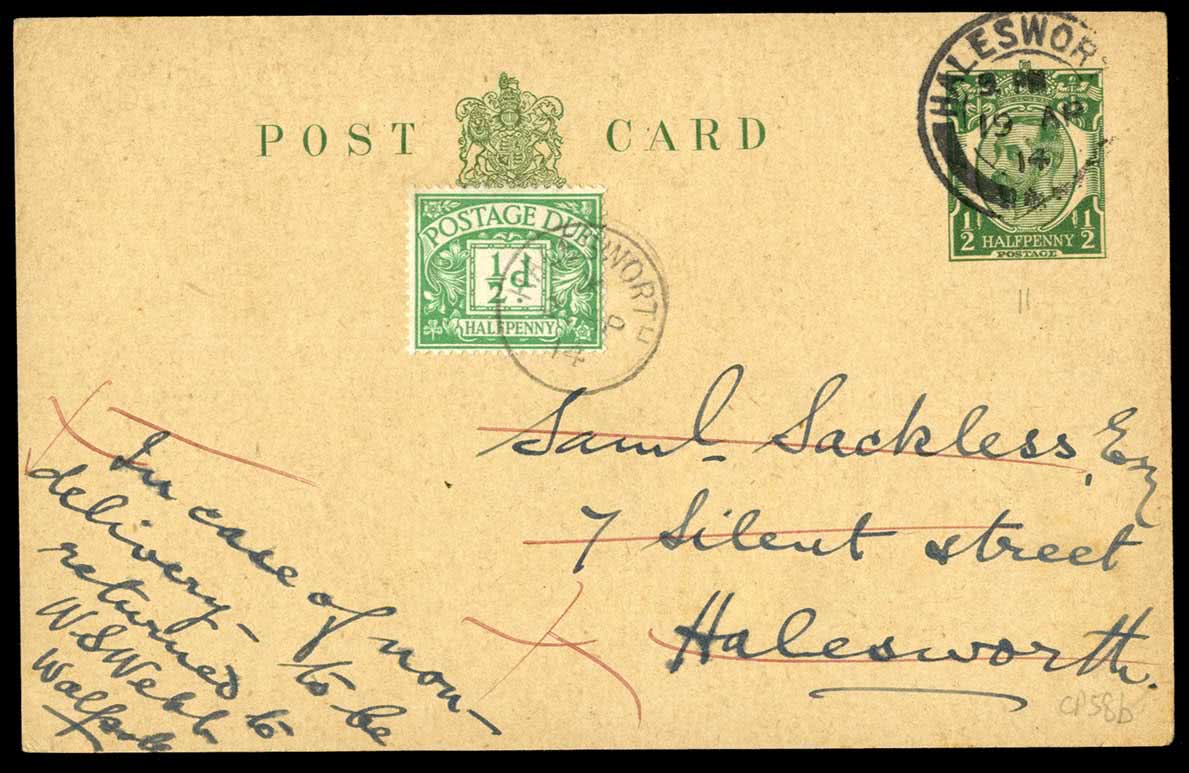 POST CARD
HALESWOR
19 AP
14
1/2 HALFPENNY 1/2
POSTAGE
POSTAGE DUE
1/2 d
HALFPENNY
14
Saml. Sackless, Esq
7 Silent street
Halesworth.
In case of non-
delivery - to be
returned to
W S Webb
CP58b